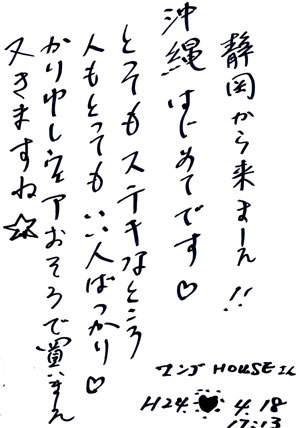 静岡から来まーた!!
沖縄はじめてです♡
とてもステキなところ
人もとっても いい人ばっかり♡
かりゆしウェアおそろで買いました
又きますね☆
マンゴHOUSEにて
H24.♥4.18
17:13